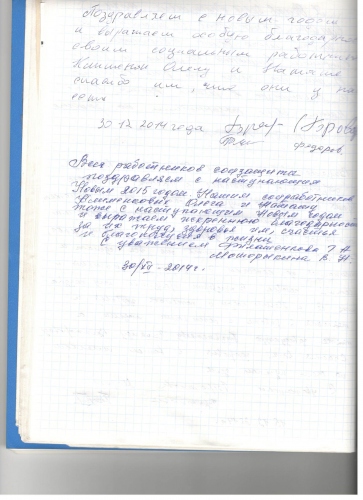 Поздравляем с новым годом
и выражаем особую благодарность
своим социальным работникам
Олегу и Наташе
спасибо им, что они у нас
есть
30.12.2014 года
Федоров
Всех работников соцзащиты
поздравляем с наступающим
Новым 2015 годом. Наших соцработников
Олега и Наташу
тоже с наступающим Новым годом
и выражаем искреннюю благодарность
за их труд, здоровья им, счастья
и благополучия в жизни
С уважением
В. Н.
30/XII - 2014 г.